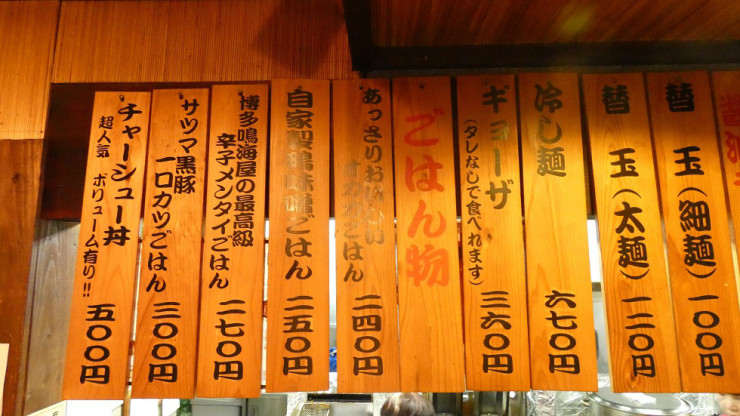 替玉(細麺)
一〇〇円
替玉(太麺)
一二〇円
冷し麺
六七〇円
ギョーザ
(タレなしで食べれます)
三六〇円
ごはん物
あっさり
ごはん
二四〇円
自家製鶏味噌ごはん
二五〇円
博多鳴海屋の最高級
辛子メンタイごはん
二七〇円
サツマ黒豚
一口カツごはん
三〇〇円
チャーシュー丼
超人気 ボリューム有り!!
五〇〇円